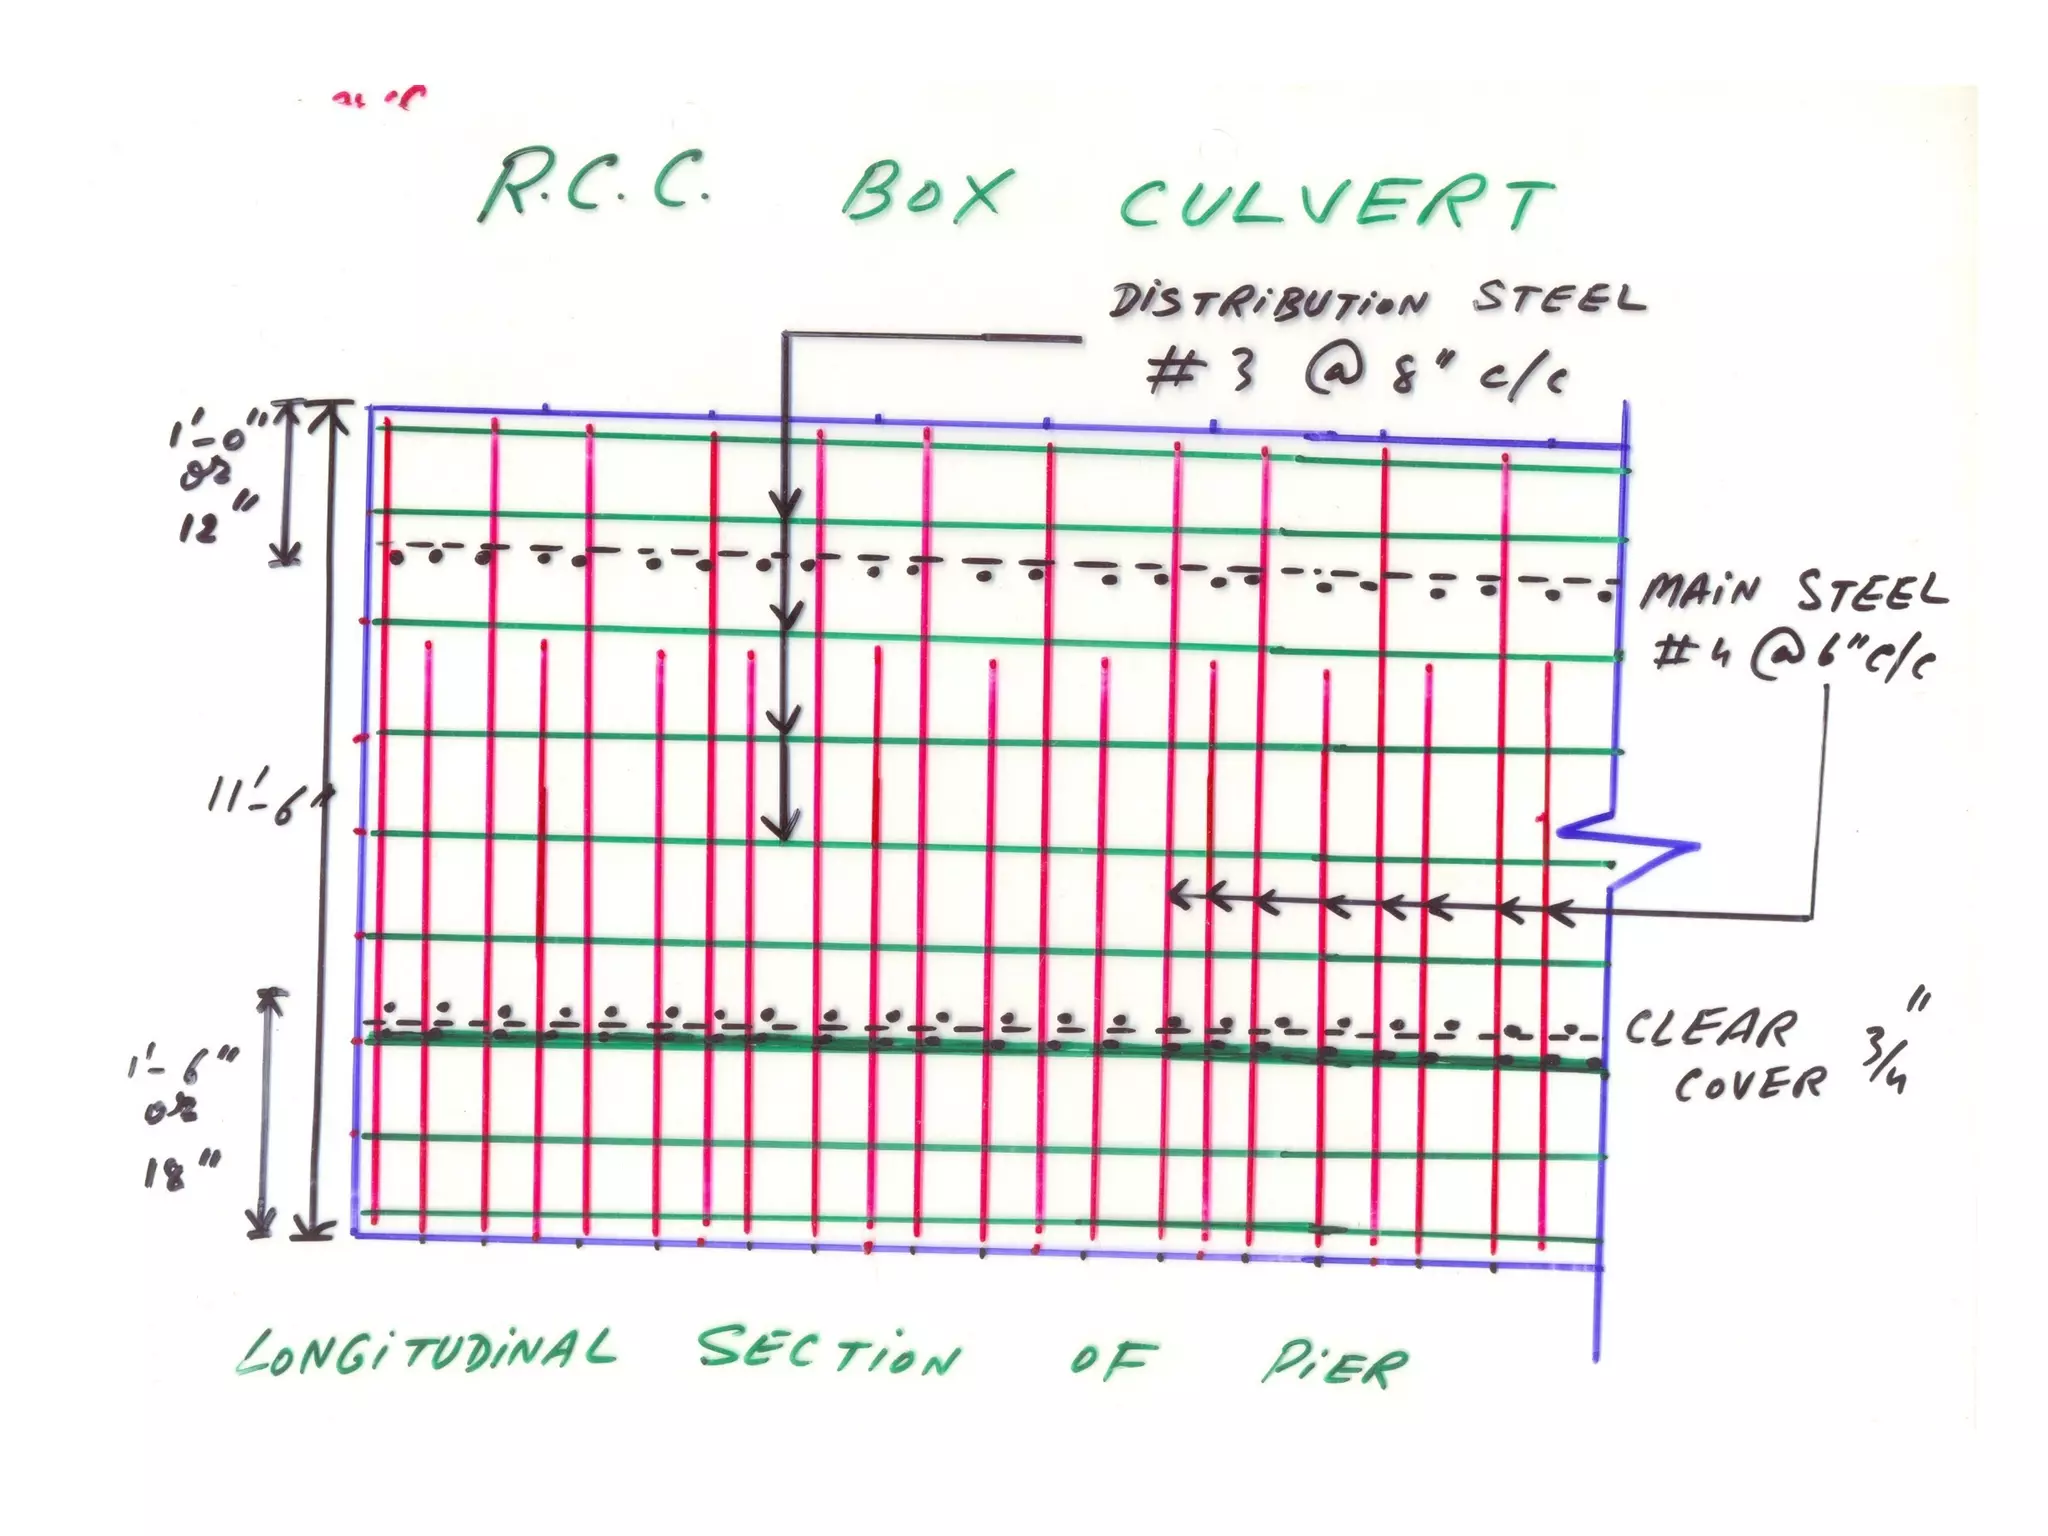 R.C.C. BOX CULVERT
DiSTRiBUTiON STEEL
# 3 @ 8" c/c
1'-0"
or
12"
MAiN STEEL
# 4 @ 6" c/c
11'-6"
CLEAR 3/4"
COVER
1'-6"
or
18"
LONGiTUDiNAL SECTiON OF PiER